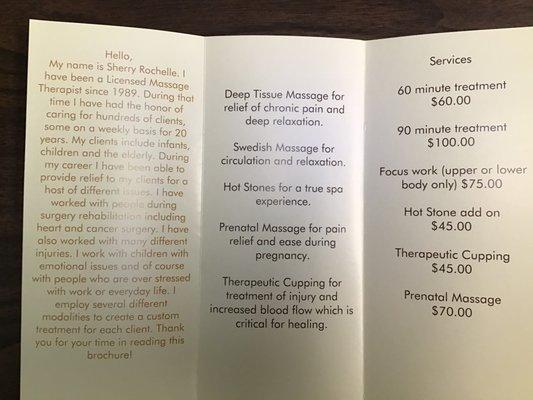 Hello,
My name is Sherry Rochelle. I
have been a Licensed Massage
Therapist since 1989. During that
time I have had the honor of
caring for hundreds of clients,
some on a weekly basis for 20
years. My clients include infants,
children and the elderly. During
my career I have been able to
provide relief to my clients for a
host of different issues. I have
worked with people during
surgery rehabilitation including
heart and cancer surgery. I have
also worked with many different
injuries. I work with children with
emotional issues and of course
with people who are over stressed
with work or everyday life. I
employ several different
modalities to create a custom
treatment for each client. Thank
you for your time in reading this
brochure!
Deep Tissue Massage for
relief of chronic pain and
deep relaxation.
Swedish Massage for
circulation and relaxation.
Hot Stones for a true spa
experience.
Prenatal Massage for pain
relief and ease during
pregnancy.
Therapeutic Cupping for
treatment of injury and
increased blood flow which is
critical for healing.
Services
60 minute treatment
$60.00
90 minute treatment
$100.00
Focus work (upper or lower
body only) $75.00
Hot Stone add on
$45.00
Therapeutic Cupping
$45.00
Prenatal Massage
$70.00